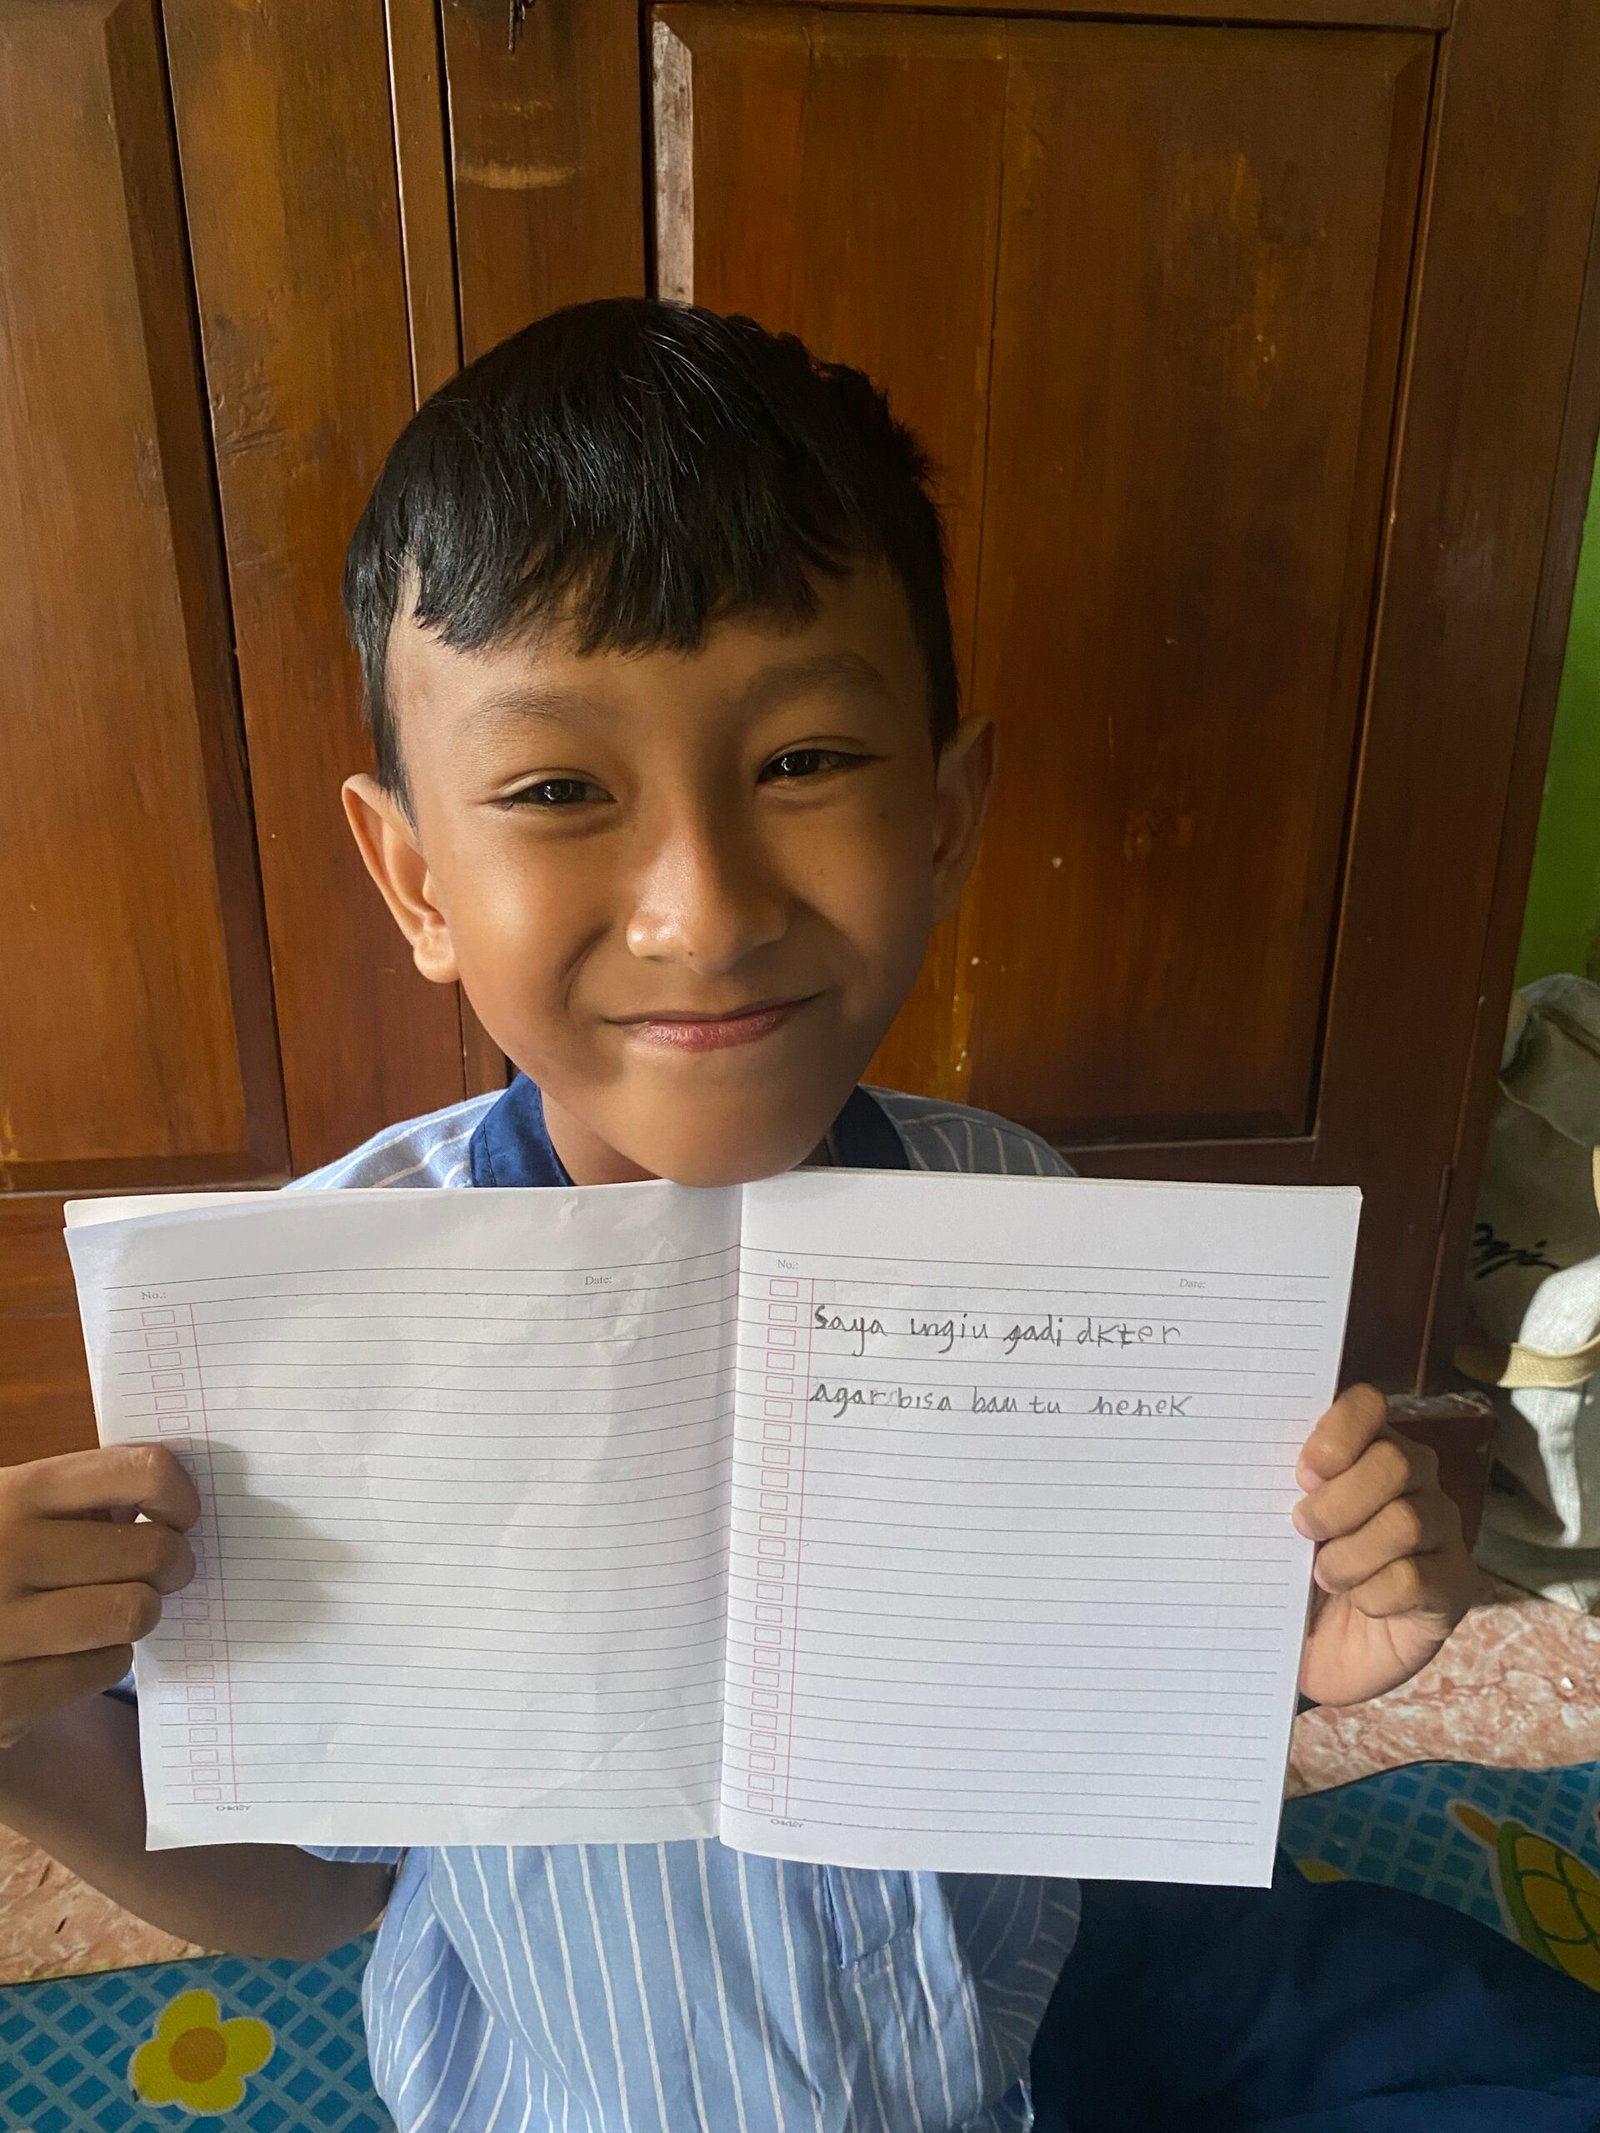 No.: Date:
No.: Date:
Saya ingiu gadi dkter
agar bisa bau tu nenek